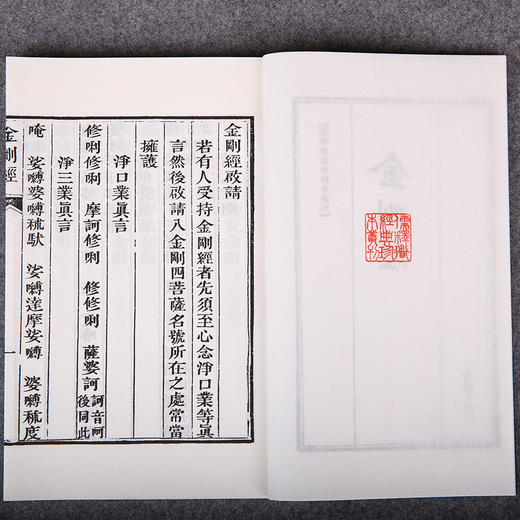 金剛經啟請
若有人受持金剛經者先須至心念淨口業等眞
言然後啟請八金剛四菩薩名號所在之處常當
擁護
淨口業眞言
修唎修唎 摩訶修唎 修修唎 薩婆訶訶音呵後同此
淨三業眞言
唵 娑嚩婆嚩秫馱 娑嚩達摩娑嚩 婆嚩秫度
金剛經
一
金剛
儒釋道
經典珍
本叢刊